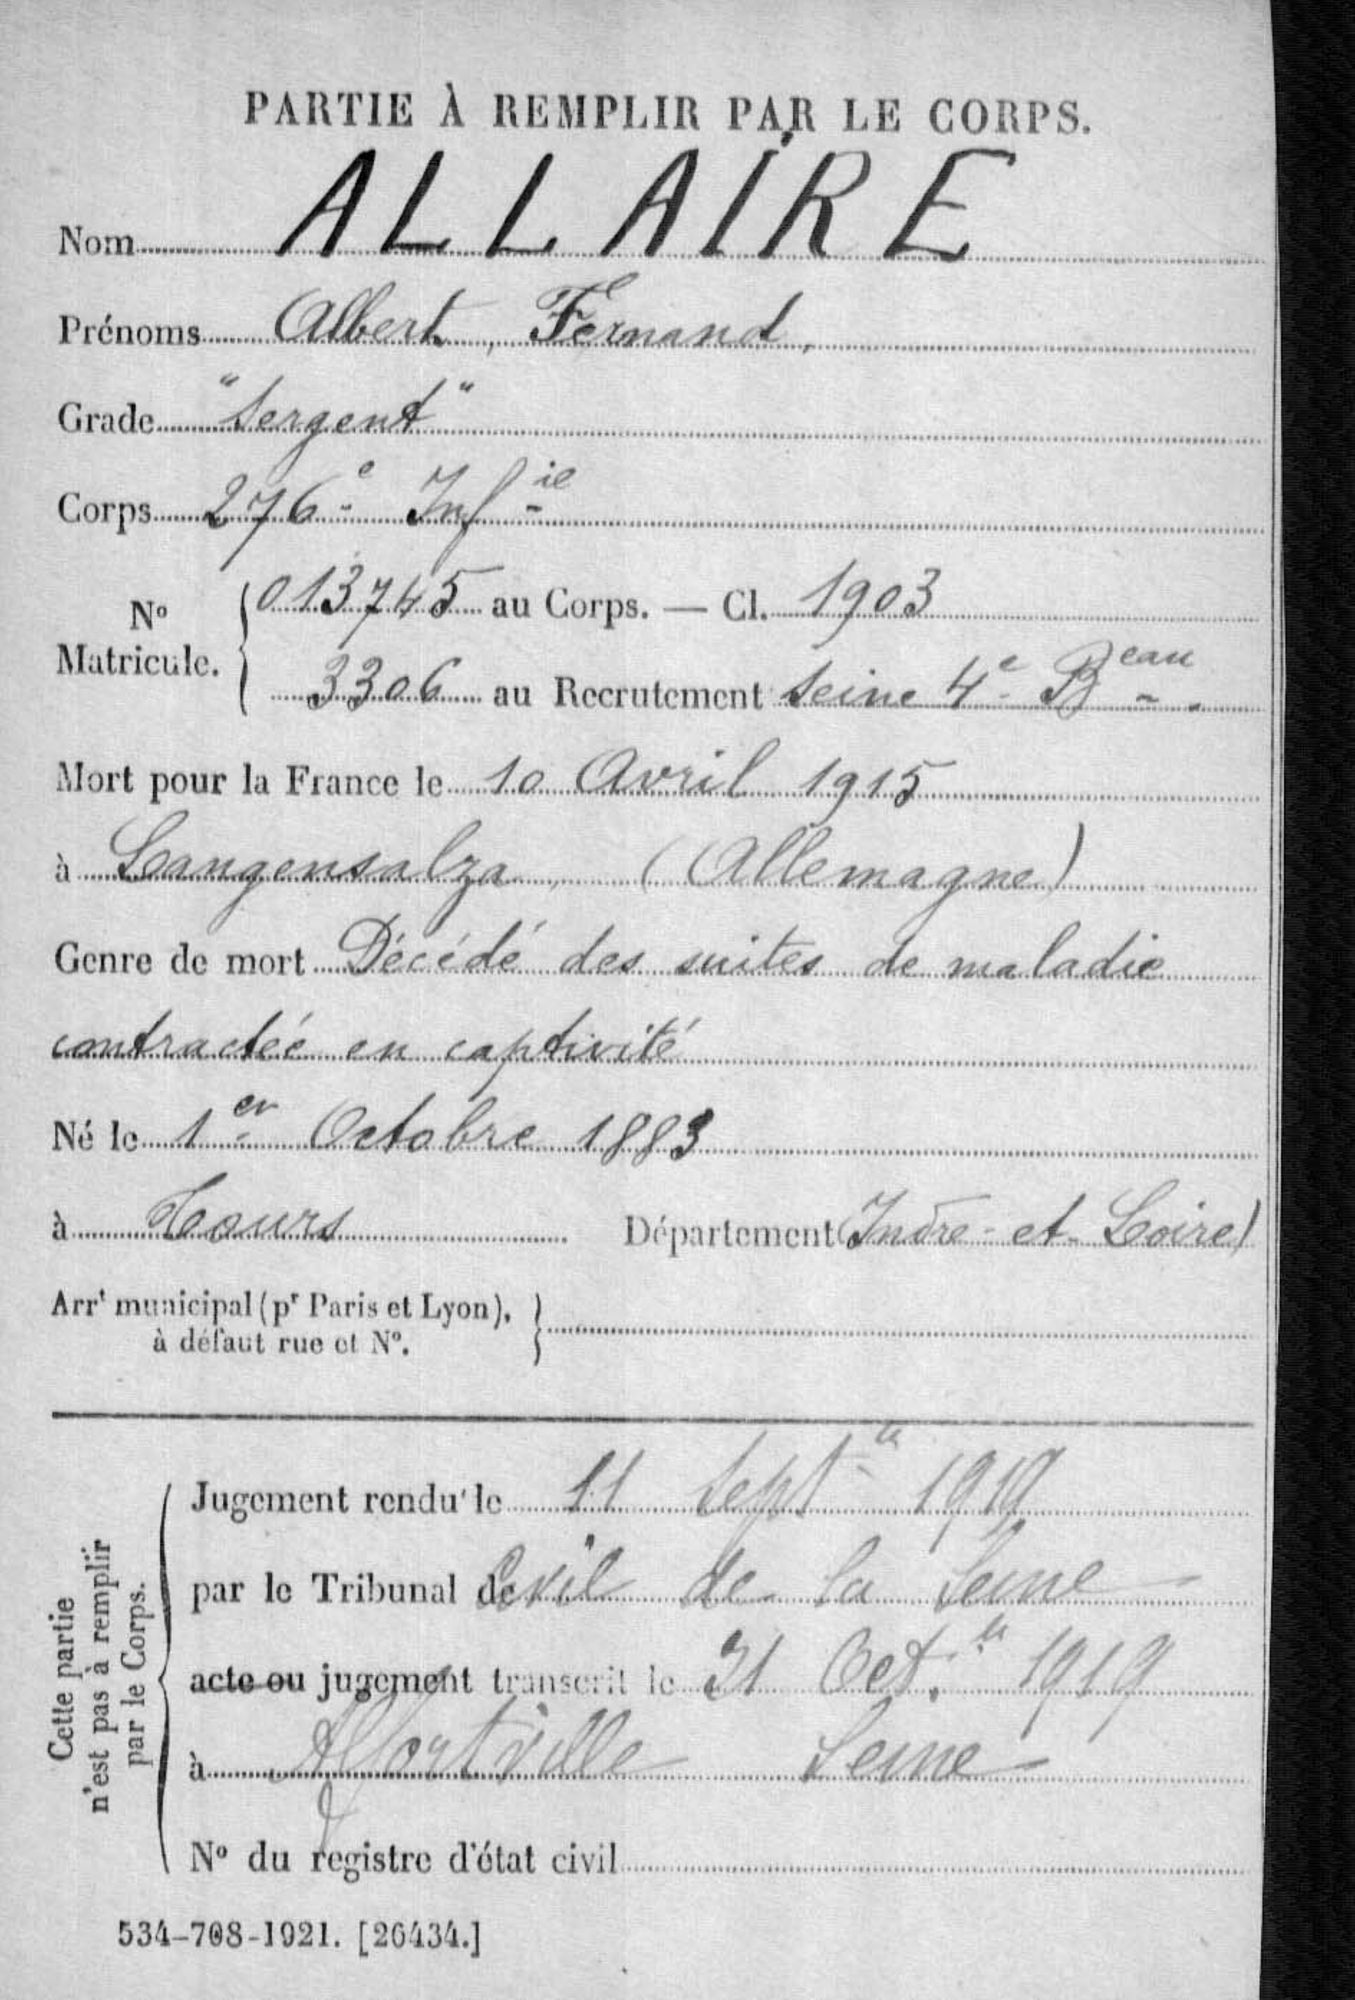 PARTIE À REMPLIR PAR LE CORPS.
Nom ALLAIRE
Prénoms Albert, Fernand,
Grade "Sergent"
Corps 276e Infie
No Matricule. { 013745 au Corps. — Cl. 1903
3306 au Recrutement Seine 4e Beau.
Mort pour la France le 10 Avril 1915
à Langensalza, (Allemagne)
Genre de mort Décédé des suites de maladie
contractée en captivité
Né le 1er Octobre 1883
à Tours Département (Indre-et-Loire)
Arrt municipal (pr Paris et Lyon), }
à défaut rue et No.
Cette partie
n'est pas à remplir
par le Corps.
Jugement rendu le 11 Sept 1919
par le Tribunal de Civil de la Seine
acte ou jugement transcrit le 21 Oct. 1919
à Alfortville Seine
No du registre d'état civil
534-708-1921. [26434.]